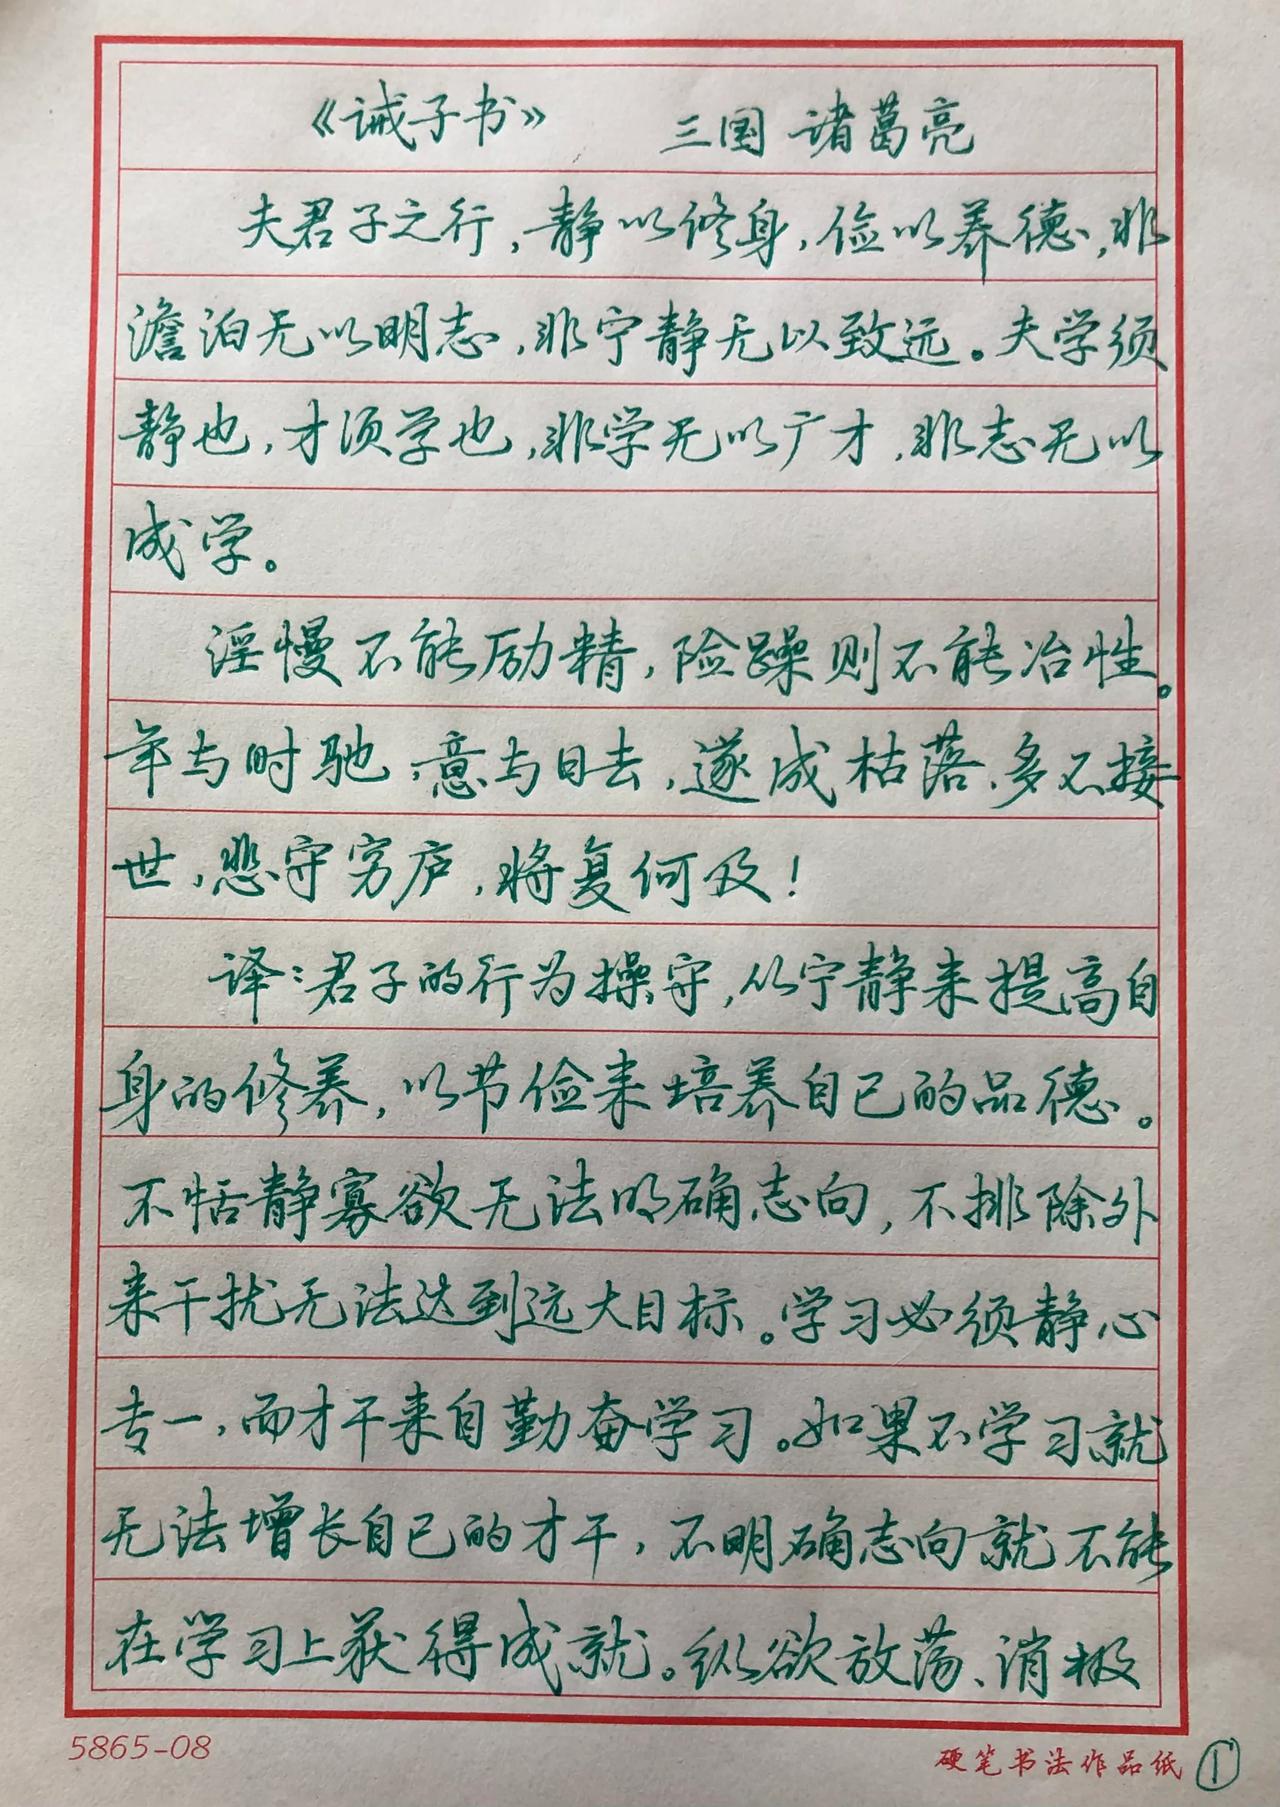 《诫子书》 三国 诸葛亮
夫君子之行,静以修身,俭以养德,非
澹泊无以明志,非宁静无以致远。夫学须
静也,才须学也,非学无以广才,非志无以
成学。
淫慢不能励精,险躁则不能冶性。
年与时驰,意与日去,遂成枯落、多不接
世,悲守穷庐,将复何及!
译:君子的行为操守,以宁静来提高自
身的修养,以节俭来培养自己的品德。
不恬静寡欲无法明确志向,不排除外
来干扰无法达到远大目标。学习必须静心
专一,而才干来自勤奋学习。如果不学习就
无法增长自己的才干,不明确志向就不能
在学习上获得成就。纵欲放荡、消极
5865-08
硬笔书法作品纸 ①